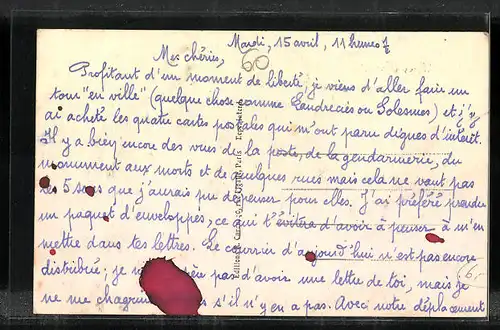 Mardi, 15 avril, 11 heures
60
Mes chéris,
Profitant d'un moment de liberté, je viens d'aller faire un
tour "en ville" (quelque chose comme Landrecies ou Solesmes) et j'y
ai acheté les quatre cartes postales qui m'ont paru dignes d'intérêt.
Il y a bien encore des vues de la poste, de la gendarmerie, du
monument aux morts et de quelques rues mais cela ne vaut pas
les 5 sous que j'aurais pu dépenser pour elles. J'ai préféré prendre
un paquet d'enveloppes, ce qui t'évitera d'avoir à penser à m'en
mettre dans tes lettres. Le courrier d'aujourd'hui n'est pas encore
distribué; je pas d'avoir une lettre de toi, mais je
ne me s'il n'y en a pas. Avec notre déplacement